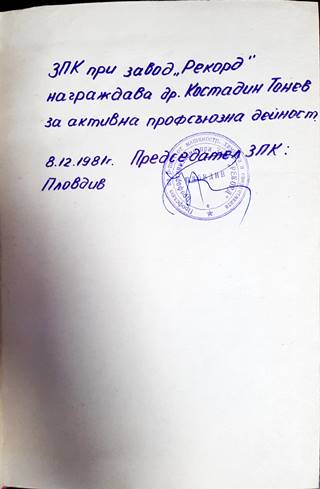 ЗПК при завод „Рекорд"
награждава др. Костадин Тонев
за активна профсъюзна дейност.
8.12.1981г. Председател ЗПК:
Пловдив
"РЕКОРД"
ПЛОВДИВ